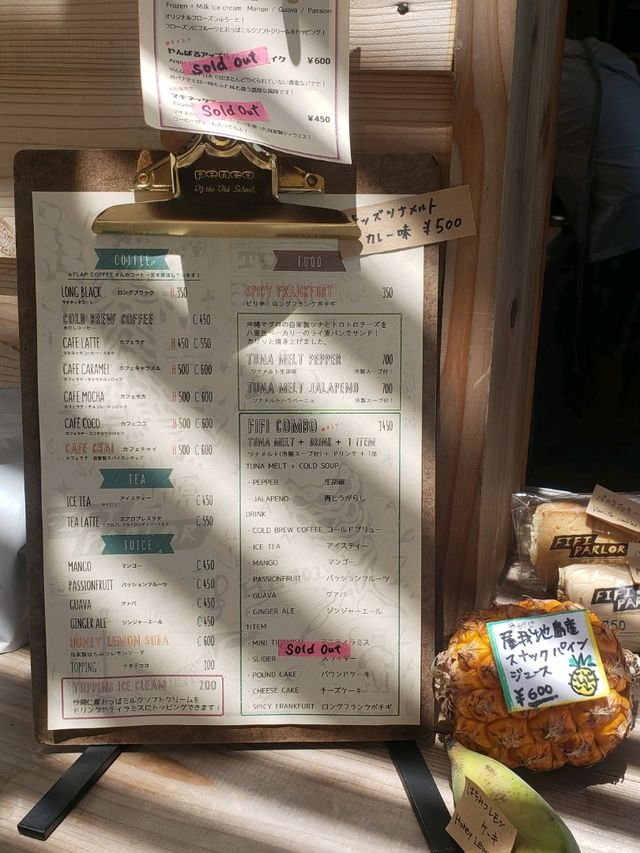 Frozen + Milk ice cream Mango / Guava / Passion
オリジナルフローズンふろーと!
フローズンにフルーツとおっぱミルクソフトクリームをトッピング!
¥600
Sold Out
Sold Out
¥450
penco
Of the Old School.
カレー味 ¥500
COFFEE
LONG BLACK ロングブラック H 350
COLD BREW COFFEE C 450
CAFE LATTE カフェラテ H 450 C 550
CAFE CARAMEL カフェキャラメル H 500 C 600
CAFE MOCHA カフェモカ H 500 C 600
CAFE COCO カフェココ H 500 C 600
CAFE CHAI カフェチャイ H 500 C 600
TEA
ICE TEA アイスティー C 450
TEA LATTE エアロプレスラテ C 550
JUICE
MANGO マンゴー C 450
PASSIONFRUIT パッションフルーツ C 450
GUAVA グァバ C 450
GINGER ALE ジンジャーエール C 450
HONEY LEMON SODA C 600
自家製はちみつレモンソーダ
TOPPING ナタデココ 100
TOPPING ICE CREAM 200
今帰仁産おっぱミルクソフトクリームを
ドリンクやティラミスにトッピングできます!
FOOD
SPICY FRANKFURT 350
ピリ辛!ロングフランクポチギ
沖縄マグロの自家製ツナとトロトロチーズを
八重岳ベーカリーのライ麦パンでサンド!
カリッと焼き上げました。
TUNA MELT PEPPER 700
ツナメルト生胡椒 冷製スープ付!
TUNA MELT JALAPENO 700
ツナメルトハラペーニョ 冷製スープ付!
FIFI COMBO 1450
TUNA MELT + DRINK + 1 ITEM
ツナメルト(冷製スープ付) + ドリンク + 1品
TUNA MELT + COLD SOUP
・PEPPER 生胡椒
・JALAPENO 青とうがらし
DRINK
・COLD BREW COFFEE コールドブリュー
・ICE TEA アイスティー
・MANGO マンゴー
・PASSIONFRUIT パッションフルーツ
・GUAVA グァバ
・GINGER ALE ジンジャーエール
1ITEM
・MINI TIRAMISU ミニティラミス
・SLIDER Sold Out スライダー
・POUND CAKE パウンドケーキ
・CHEESE CAKE チーズケーキ
・SPICY FRANKFURT ロングフランクポチギ
FIFI
PARLOR
FIFI
屋我地島産
スナックパイン
ジュース
¥600
はちみつレモン
ケーキ
Honey Lemon